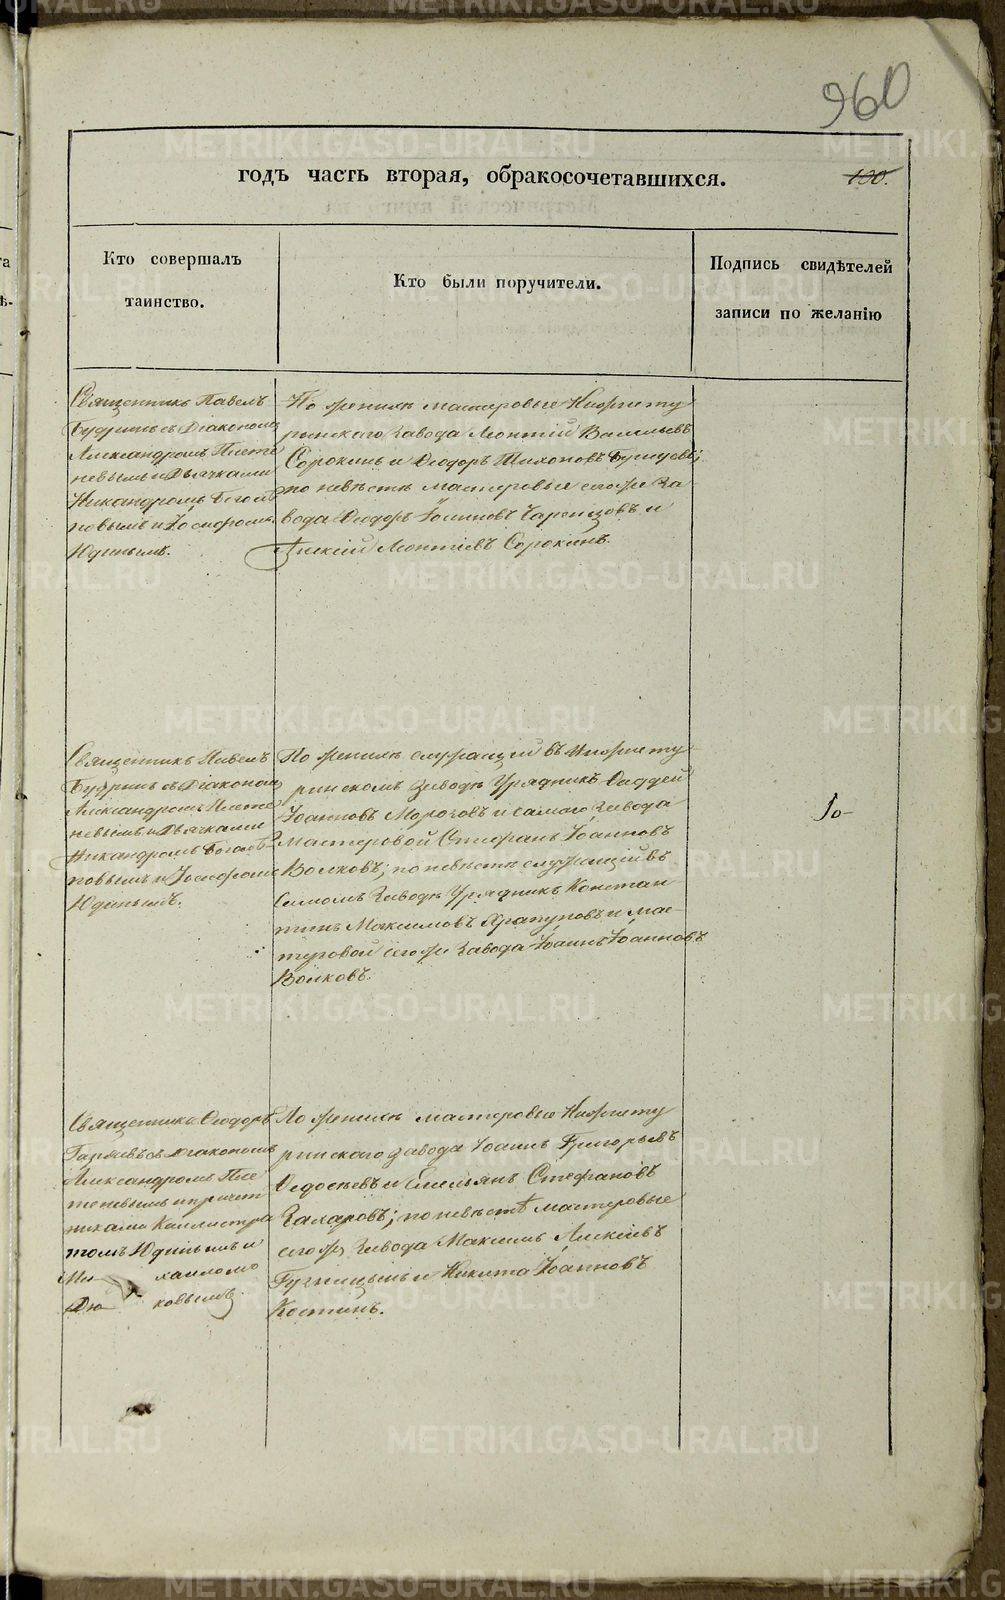 960
годъ часть вторая, обракосочетавшихся.
100.
Кто совершалъ
таинство.
Кто были поручители.
Подпись свидѣтелей
записи по желанію
Священникъ Павелъ
съ Діакономъ
Александромъ Плете
невымъ и Дьячками
Никандромъ Богол
повымъ и Іосифомъ
Юдинымъ.
По женихѣ мастеровые Нижнету
ринскаго завода Леонтій Васильевъ
Сорокинъ и Ѳеодоръ Тихоновъ
по невѣстѣ мастеровые сегоже за
вода Ѳеодоръ Іоанновъ и
Алексій Леонтіевъ Сорокинъ.
Священникъ Павелъ
съ Діакономъ
Александромъ Плете
невымъ и Дьячками
Никандромъ Богол
повымъ и Іосифомъ
Юдинымъ.
По женихѣ служащій въ Нижнету
ринскомъ заводѣ Урядникъ Ѳаддей
Іоанновъ Морозовъ и самаго завода
мастеровой Стефанъ Іоанновъ
Волковъ; по невѣстѣ служащій въ
самомъ заводѣ Урядникъ Констан
тинъ Максимовъ Храпуновъ и мас
теровой сегоже завода Іоаннъ Іоанновъ
Волковъ.
10
Священникъ Ѳеодоръ
съ Діакономъ
Александромъ Пле
теневымъ и причет
никами Каллистра
томъ Юдинымъ и
Ми хаиломъ
ковымъ
По женихѣ мастеровые Нижнету
ринскаго завода Іоаннъ Григорьевъ
Ѳедосѣевъ и Емельянъ Стефановъ
Захаровъ; по невѣстѣ мастеровые
сегожъ завода Максимъ Алексіевъ
и Никита Іоанновъ
Костинъ.
METRIKI.GASO-URAL.RU